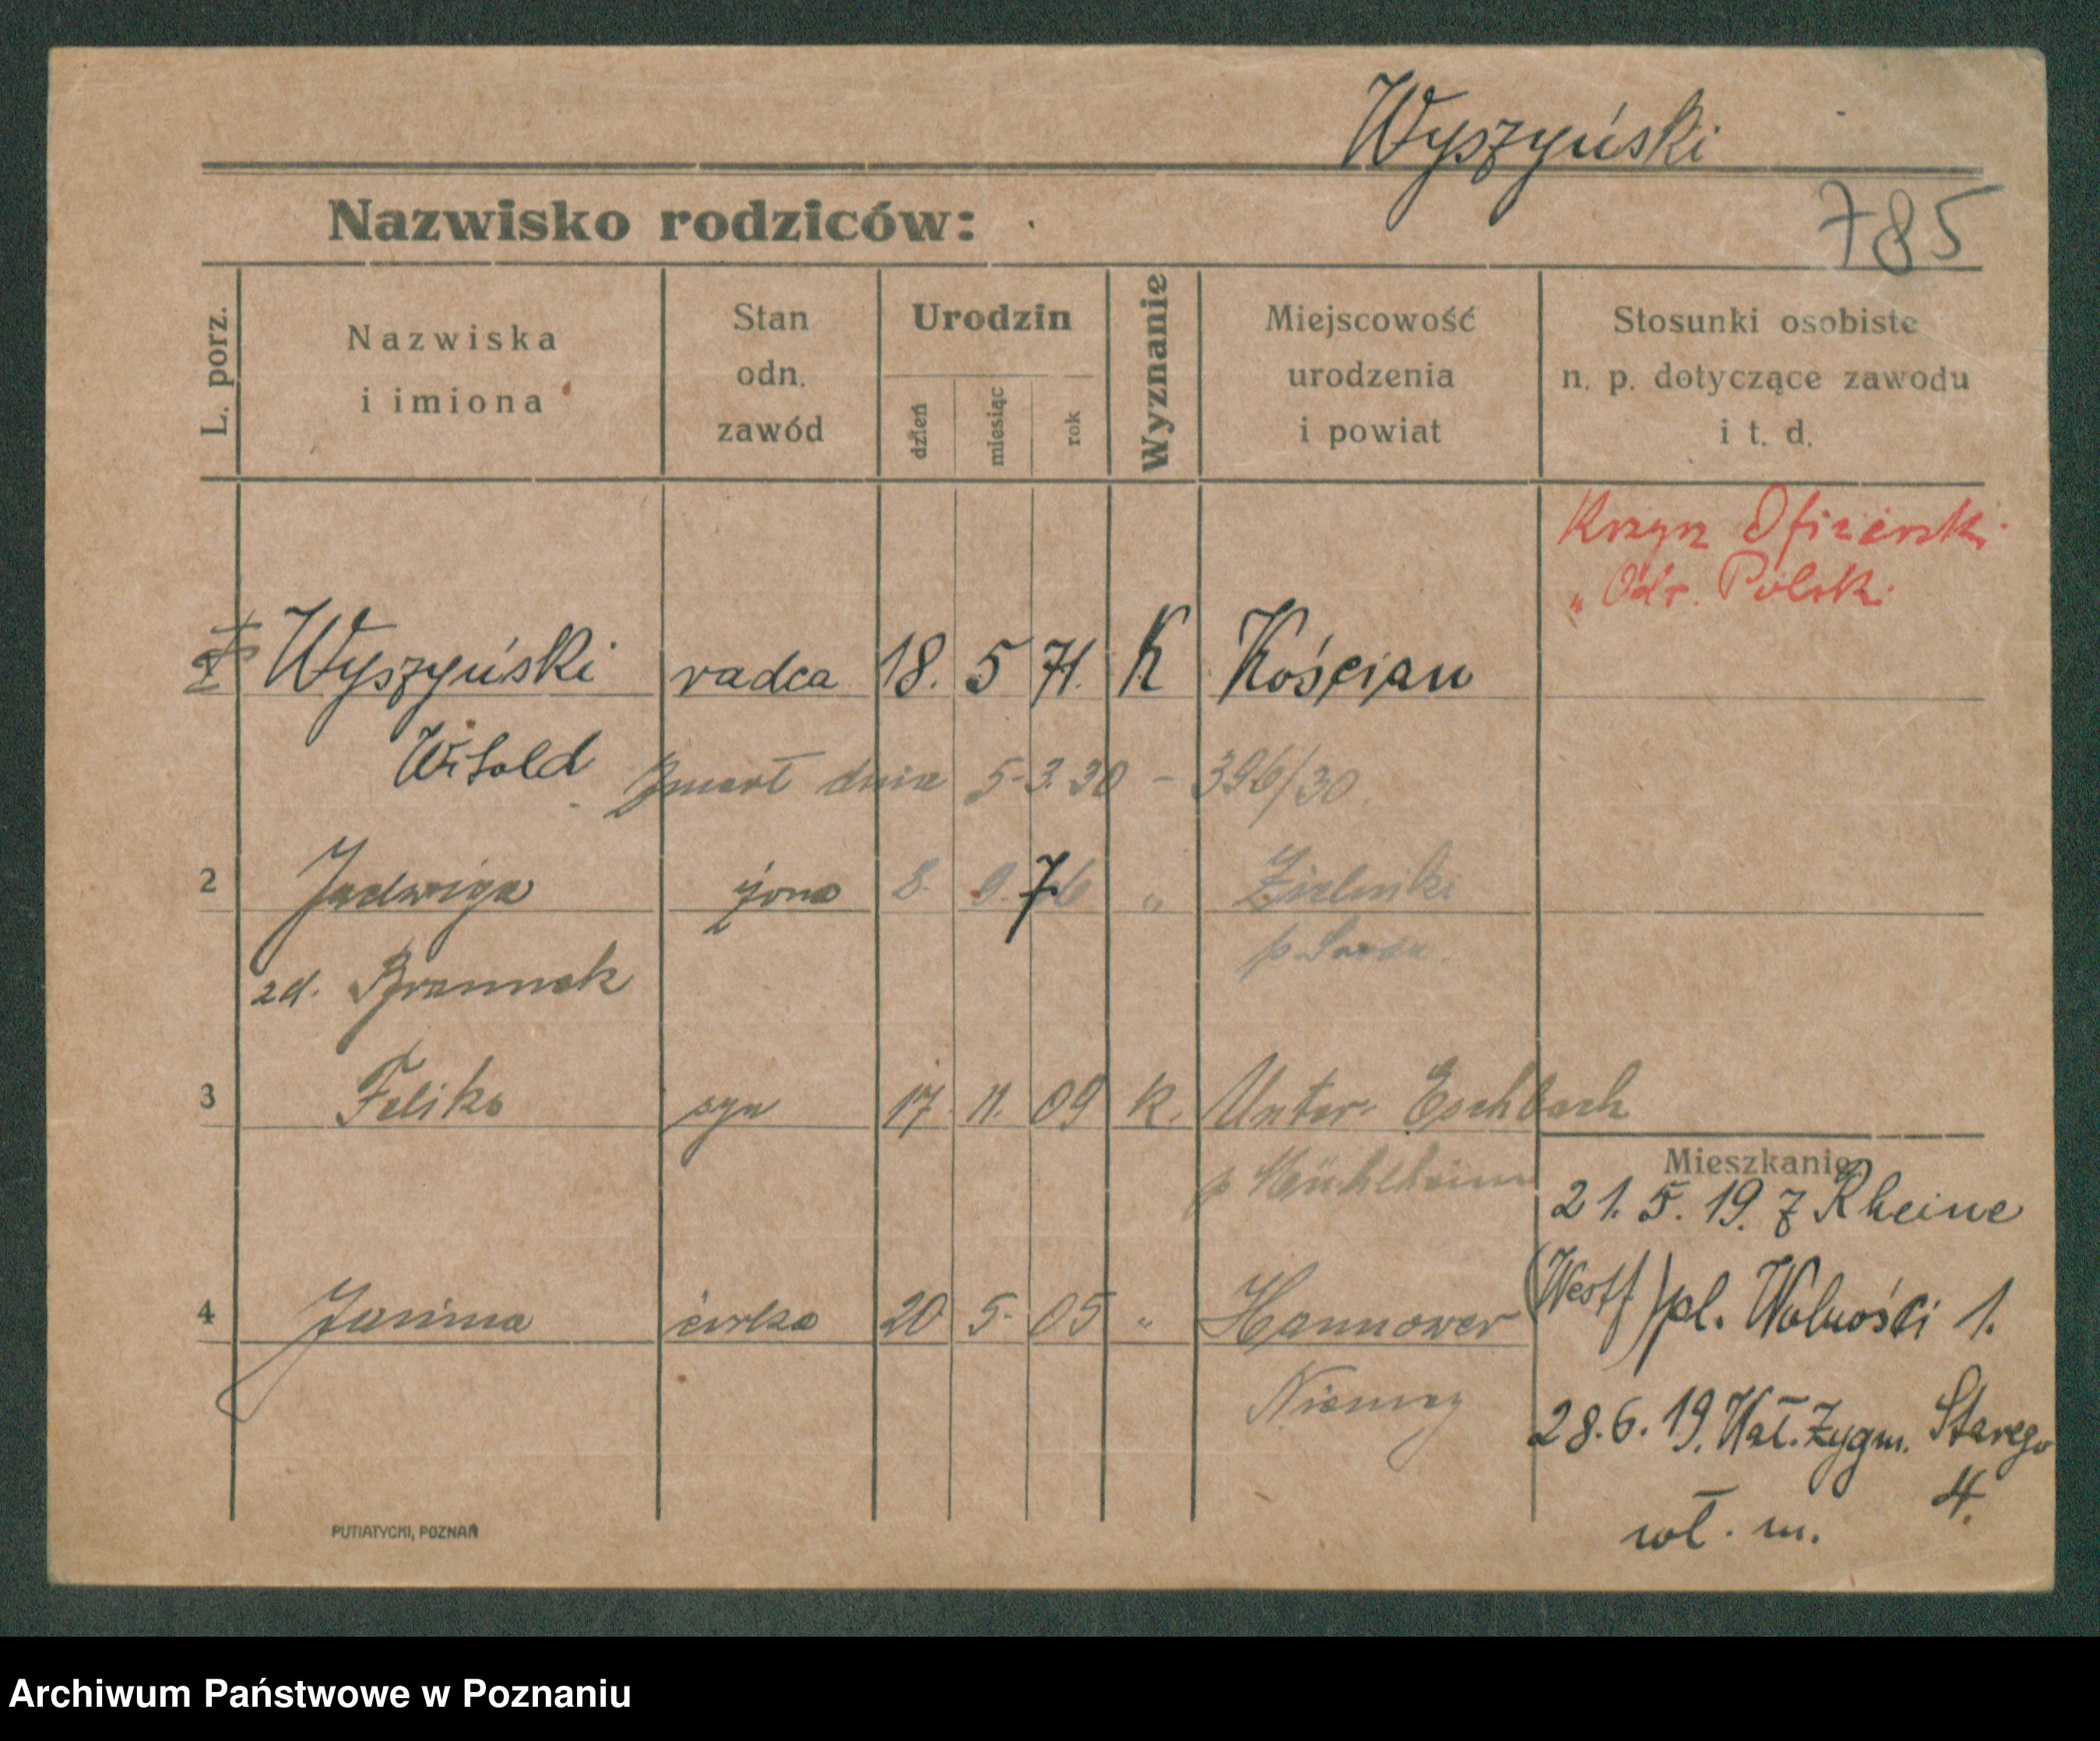 Wyszyński
785
Nazwisko rodziców:
L. porz.
Nazwiska
i imiona
Stan
odn.
zawód
Urodzin
dzień
miesiąc
rok
Wyznanie
Miejscowość
urodzenia
i powiat
Stosunki osobiste
n. p. dotyczące zawodu
i t. d.
Krzyż Oficerski
„ Odr. Polski
Wyszyński radca 18. 5 71. K Kościan
Witold
Zmarł dnia 5-3.30 - 396/30
2 Jadwiga żona 8. 9. 76 „ Zielniki
p
zd.
3 Feliks syn 17. 11. 09 K. Unter. Eschbach
p Mühlheim
4 Janina córka 20 5. 05 „ Hannower
Niemcy
Mieszkanie:
21. 5. 19. z Rheine
(Westf) pl. Wolności 1.
28.6.19. Wał. Zygm. Starego
4.
wł. m.
PUTIATYCKI, POZNAŃ
Archiwum Państwowe w Poznaniu